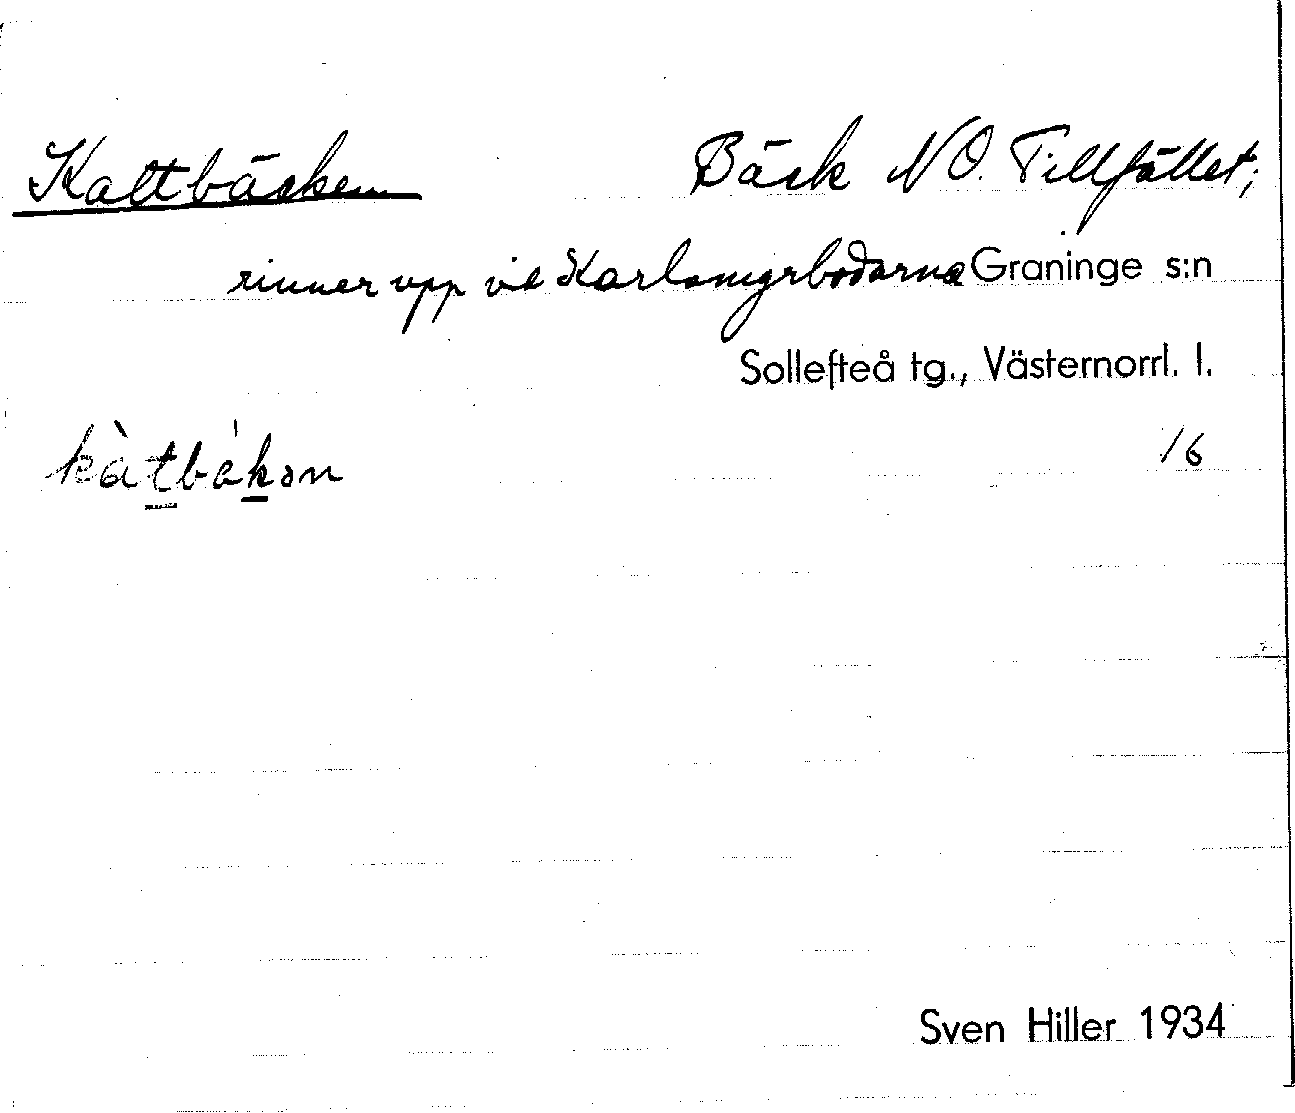 Kattbäcken Bäck NO. Tillfället;
rinner upp vid Karlsmyrbodarna Graninge s:n
Sollefteå tg., Västernorrl. l.
kàtbákən 16
Sven Hiller 1934